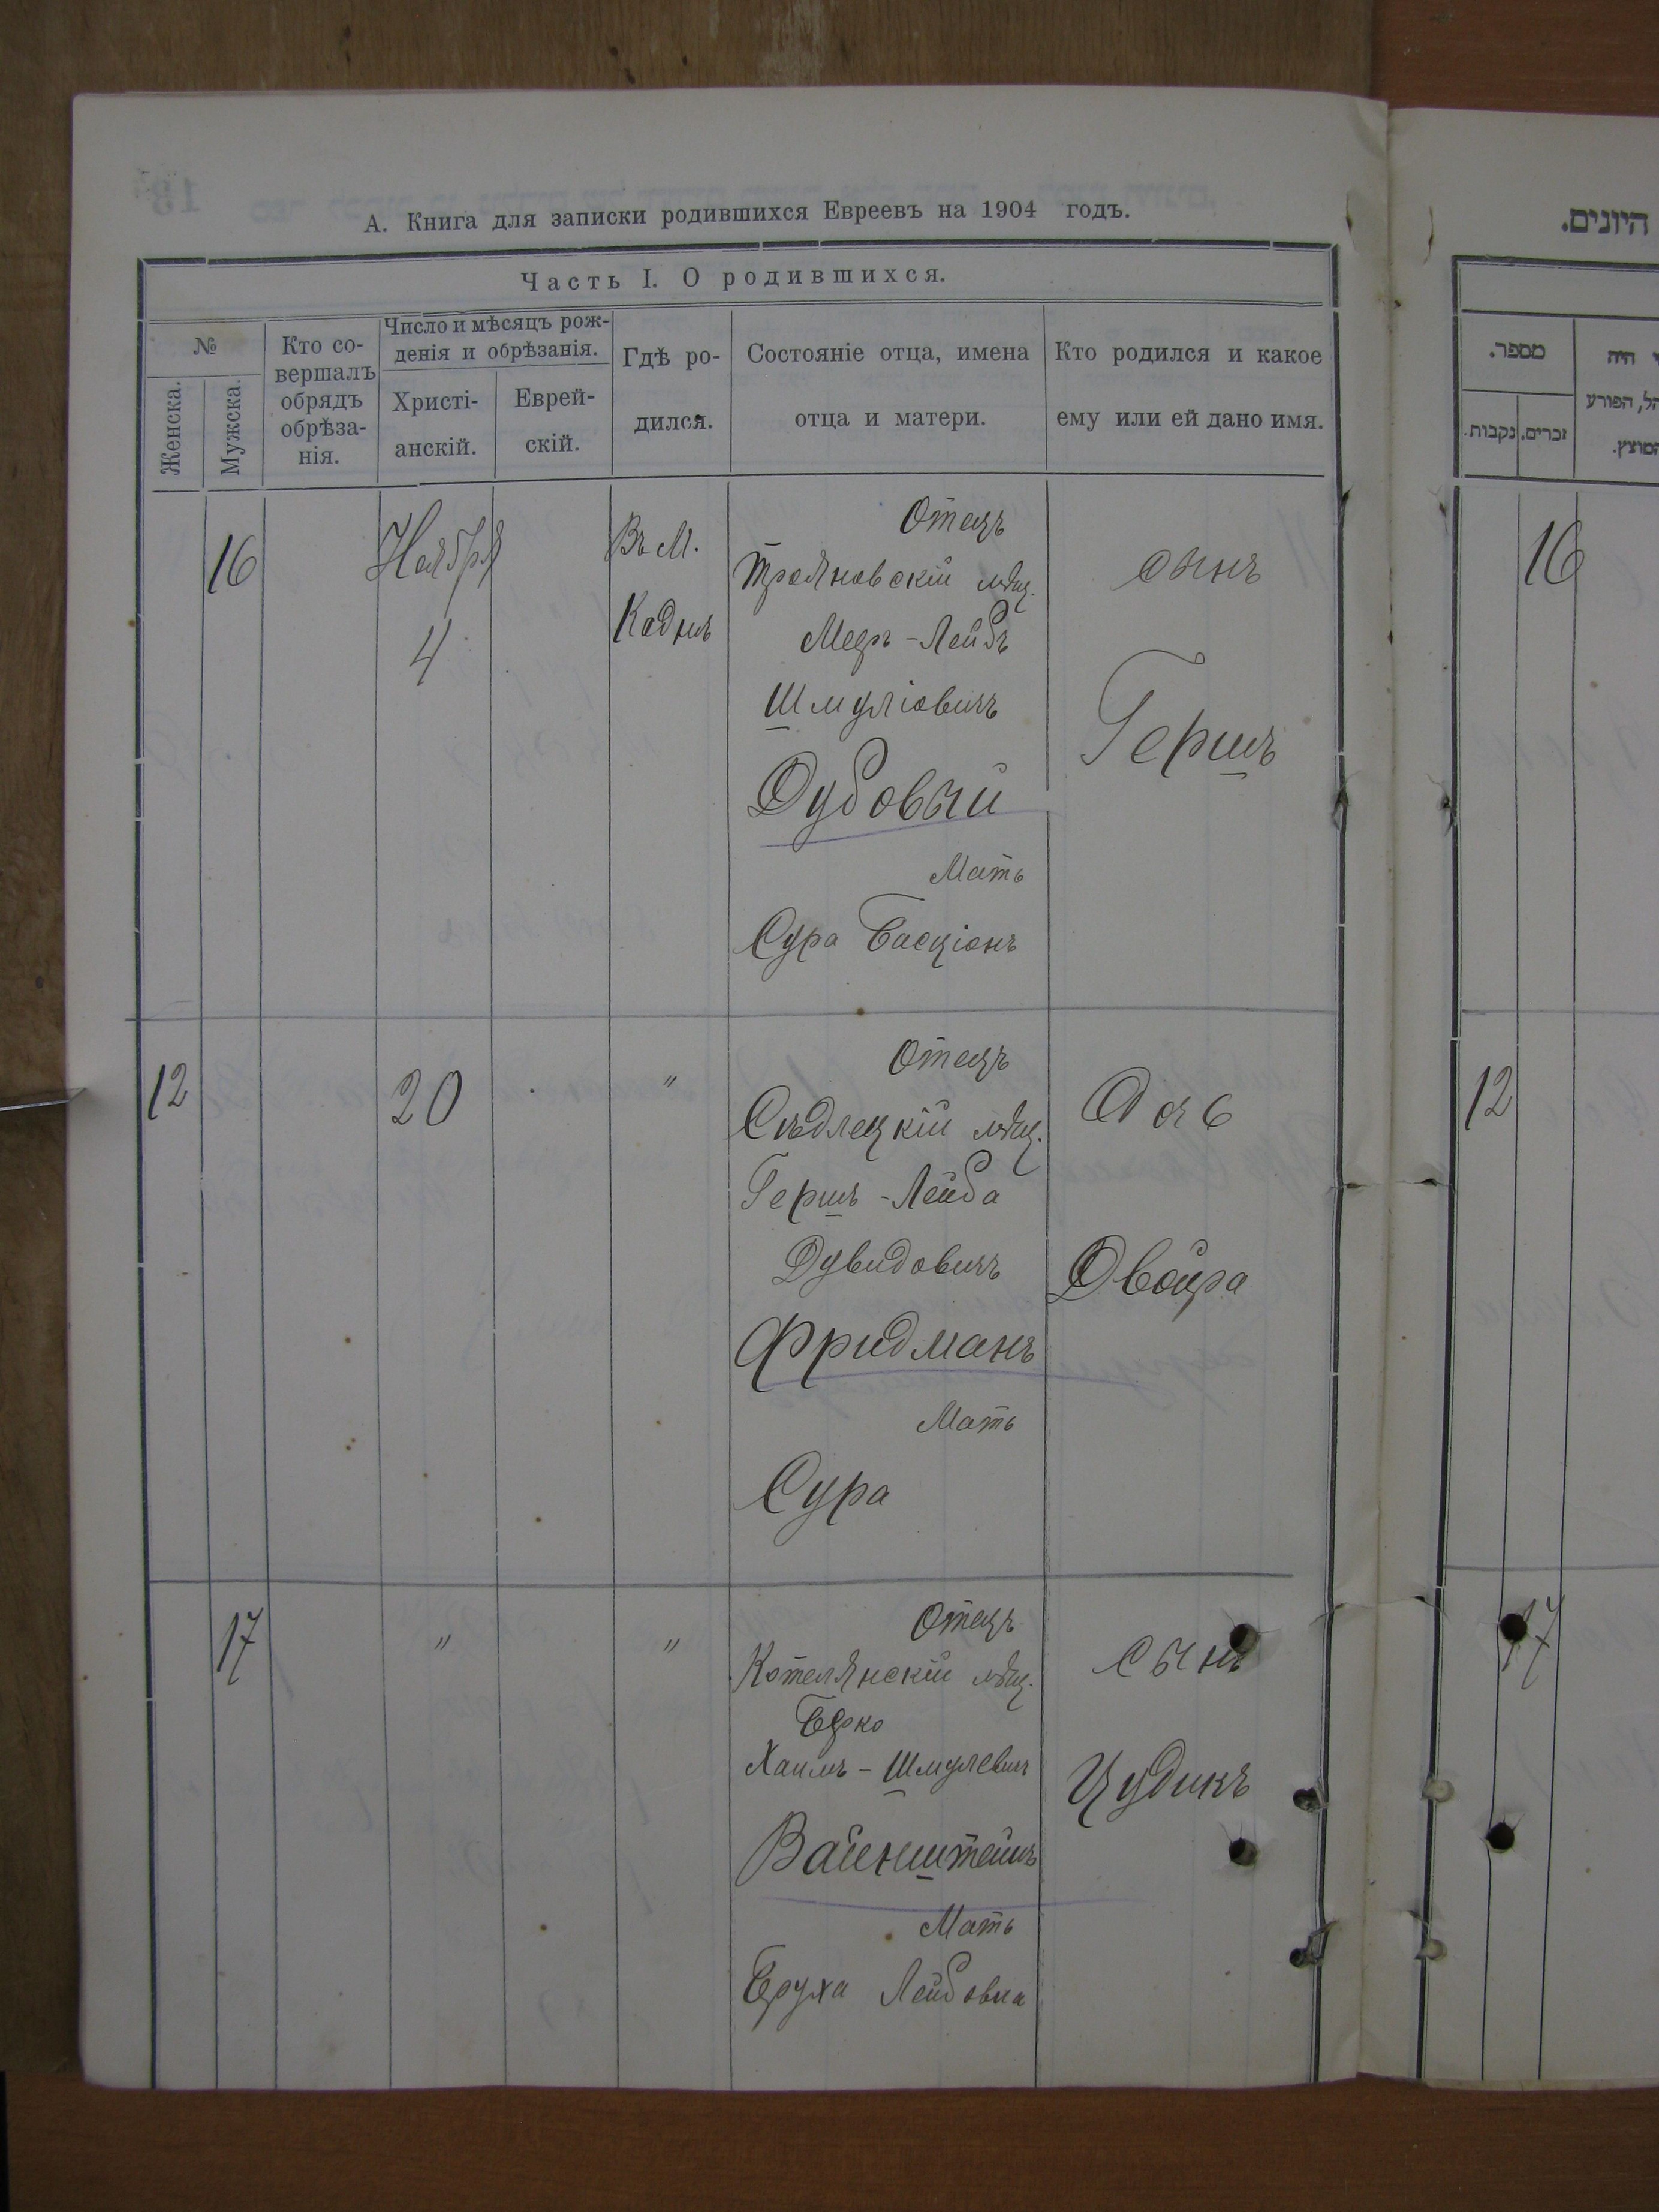 А. Книга для записки родившихся Евреевъ на 1904 годъ.
Часть I. О родившихся.
№
Женска.
Мужска.
Кто со-
вершалъ
обрядъ
обрѣза-
нія.
Число и мѣсяцъ рож-
денія и обрѣзанія.
Христі-
анскій.
Еврей-
скій.
Гдѣ ро-
дился.
Состояніе отца, имена
отца и матери.
Кто родился и какое
ему или ей дано имя.
16
Ноября
4
Въ М.
Отецъ
Трояновскій мѣщ.
Мееръ-Лейбъ
Шмуліовичъ
Дубовый
Мать
Сура
сынъ
Гершъ
12
20
"
Отецъ
Сѣдлецкій мѣщ.
Гершъ-Лейба
Дувидовичъ
Фридманъ
Мать
Сура
Дочь
Двойра
17
"
"
Отецъ
Котелянскій мѣщ.
Берко
Хаимъ-Шмулевичъ
Вайенштейнъ
Мать
Бруха Лейбовна
сынъ
Цудикъ
היונים.
מספר.
זכרים.
נקבות.
היה
הפורע
16
12
17